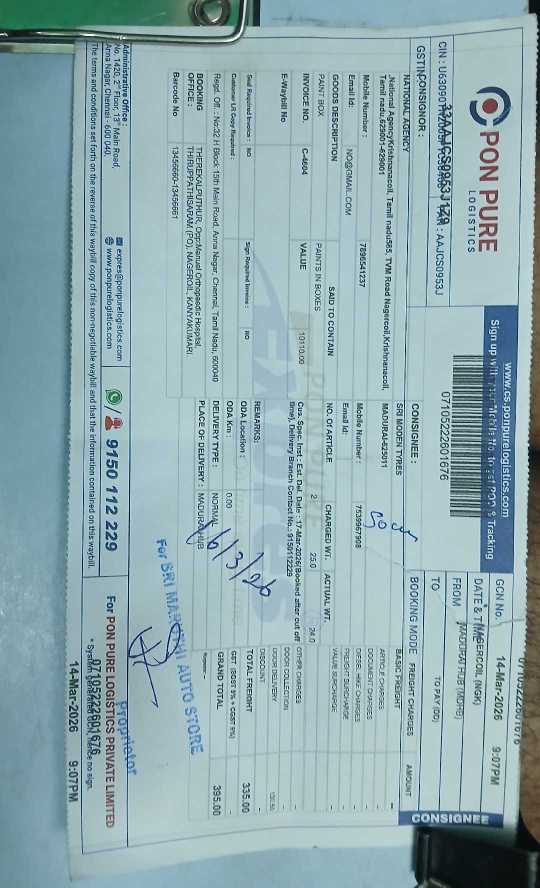 PON PURE
LOGISTICS
www.cs.ponpurelogistics.com
07105222601676
GCN No.
07105222601676
DATE & TIME
14-Mar-2026 9:07PM
FROM
NAGERCOIL (NGK)
TO
MADURAI HUB (MDHB)
BOOKING MODE
TO PAY(DD)
CONSIGNEE
GSTIN
33AAJCS0953J1Z9
PAN : AAJCS0953J
CONSIGNOR :
NATIONAL AGENCY
National Agency,Krishnanacoil, Tamil nadu585, TVM Road Nagercoil,Krishnanacoil,
Tamil nadu,629001-629001
Mobile Number : 7896541237
Email Id: NO@GMAIL.COM
CONSIGNEE :
SRI MODEN TYRES
MADURAI-625011
Mobile Number : 7539967908
Email Id:
GOODS DESCRIPTION
SAID TO CONTAIN
NO. Of ARTICLE
CHARGED WT.
ACTUAL WT.
PAINT BOX
PAINTS IN BOXES
2
25.0
24.0
INVOICE NO.
VALUE
C-4604
10110.00
E-Waybill No
Cus. Spec. Inst : Est. Del. Date : 17-Mar-2026(Booked after cut off
time), Delivery Branch Contact No.: 9150112229
REMARKS:
Seal Required Invoice : NO
Sign Required Invoice : NO
ODA Location :
Customer LR Copy Required :
ODA Km : 0.00
Regd. Off. : No:32 H Block 15th Main Road, Anna Nagar, Chennai, Tamil Nadu, 600040
DELIVERY TYPE : NORMAL
BOOKING
OFFICE :
THEREKALPUTHUR, Opp:Manual Orthopaedic Hospital,
THIRUPPATHISARAM (PO), NAGEROIL, KANYAKUMARI,
PLACE OF DELIVERY : MADURAI HUB
Barcode No 13456660-13456661
FREIGHT CHARGES
AMOUNT
BASIC FREIGHT
ARTICLE CHARGES
DOCUMENT CHARGES
DIESEL HIKE CHARGES
FREIGHT SURCHARGE
VALUE SURCHARGE
OTHER CHARGES
DOOR COLLECTION
DOOR DELIVERY
DISCOUNT
TOTAL FREIGHT 335.00
GST (SGST 9% + CGST 9%)
GRAND TOTAL 395.00
16/3/26
For SRI MARUTHI AUTO STORE
Proprietor
Administrative Office:
No. 1420, 2nd Floor, 13th Main Road,
Anna Nagar, Chennai - 600 040.
expres@ponpurelogistics.com
www.ponpurelogistics.com
9150 112 229
For PON PURE LOGISTICS PRIVATE LIMITED
07105222601676
14-Mar-2026 9:07PM
The terms and conditions set forth on the reverse of this waybill copy of this non-negotiable waybill and that the information contained on this waybill.